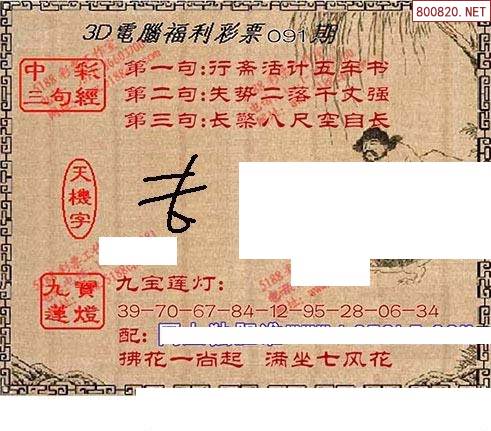 800820.NET
3D電腦福利彩票091期
中彩
三句經
第一句:行斋活计五年书
第二句:失势二落千丈强
第三句:长檠八尺空自长
天機字
九寶蓮燈
九宝莲灯:
39-70-67-84-12-95-28-06-34
配:
拂花一尚起 满坐七风花